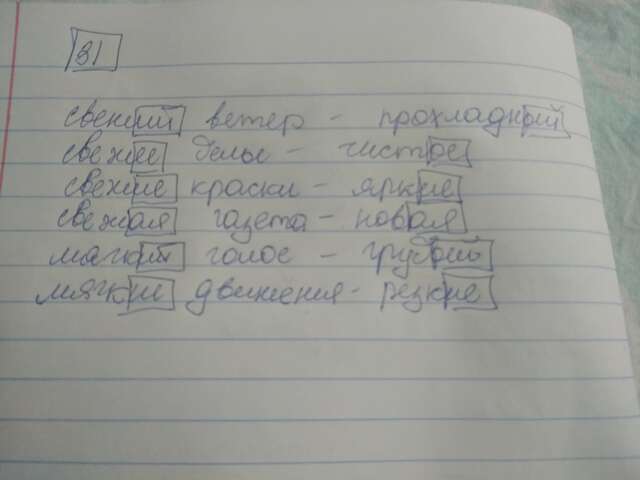 31
свежий ветер - прохладный
свежее бельё - чистое
свежие краски - яркие
свежая газета - новая
мягкий голос - грубый
мягкие движения - резкие